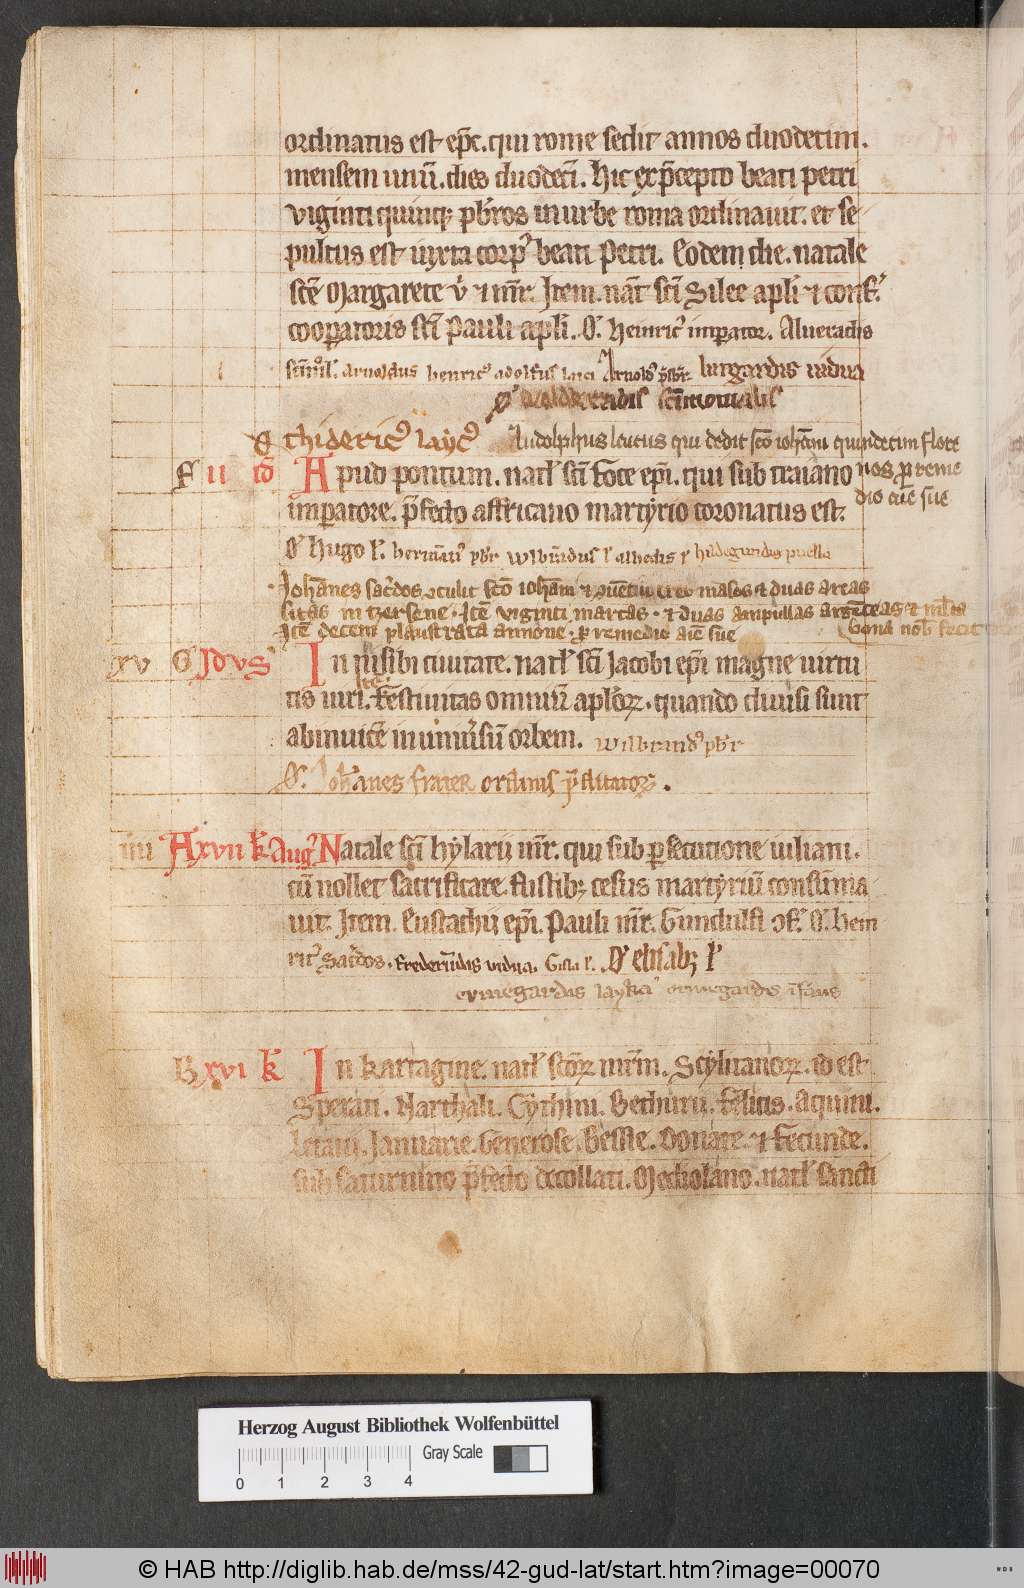 ordinatus est ep̄c. qui rome sedit annos duodecim.
mensem unū. dies duodecī. Hic ex p̄cepto beati petri
viginti quinq; pb̄ros in urbe roma ordinauit. et se
pultus est iuxta corpꝰ beati Petri. Eodem die. natale
scē Margarete v̄ ⁊ mr̄. Item. nat̄ scī Silee apl̄i ⁊ conf.
cooperatoris scī Pauli apl̄i. O. Heinricꝰ imperator. Alueradis
arnoldus henricꝰ adolfus laici Arnoldꝰ pb̄r. lutgardis uidua
O thidericꝰ laycꝰ Ludolphus laicus qui dedit scō ioh̄am quindecim flore
F ii id A pud pontum. natl̄ scī foce ep̄i. qui sub traiano nos pro reme
imperatore. p̄fecto affricano martyrio coronatus est. dio aīe sue
O Hugo hermānꝰ pb̄r hildegundis puella
Johānes sac̄dos ɔtulit scō ioh̄am ⁊ duas areas
sitas in herscne. Itē viginti marcas. ⁊ duas ampullas argēteas ⁊
Itē decem plaustrata annone. pro remedio aīe sue bona fecit
xv G Idvs I n nisibi ciuitate. natl̄ scī Jacobi ep̄i magne uirtu
tis uiri. festiuitas omniū apl̄orꝝ. quando diuisi sunt
abinuicē in uniuersū orbem. wilbrandꝰ pb̄r
O. Johanes frater ordinis p̄dicatorꝝ.
iiii A xvii k̄ Augꝰ Natale scī hylarii mr̄. qui sub persecutione iuliani.
cū nollet sacrificare. fustibꝫ cesus martyriū consūma
uit. Item. Eustachii ep̄i. Pauli mr̄. Gundulfi ɔf. O. Hein
ricꝰ Sac̄dos. frederūdis vidua. Gisla O elisabꝫ
ermegardis
B xvi k̄ I n kartagine. natl̄ scōrꝝ mr̄m. Scyluanorꝝ. id est
Sperati. Narthali. Cythini. Bethurii. felicis. Aquini.
Letani. Januarie. Generose. Bessie. Donate. ⁊ secunde.
sub saturnino p̄fecto decollati. Mediolano. natl̄ sancti
Herzog August Bibliothek Wolfenbüttel
Gray Scale
0 1 2 3 4
© HAB http://diglib.hab.de/mss/42-gud-lat/start.htm?image=00070